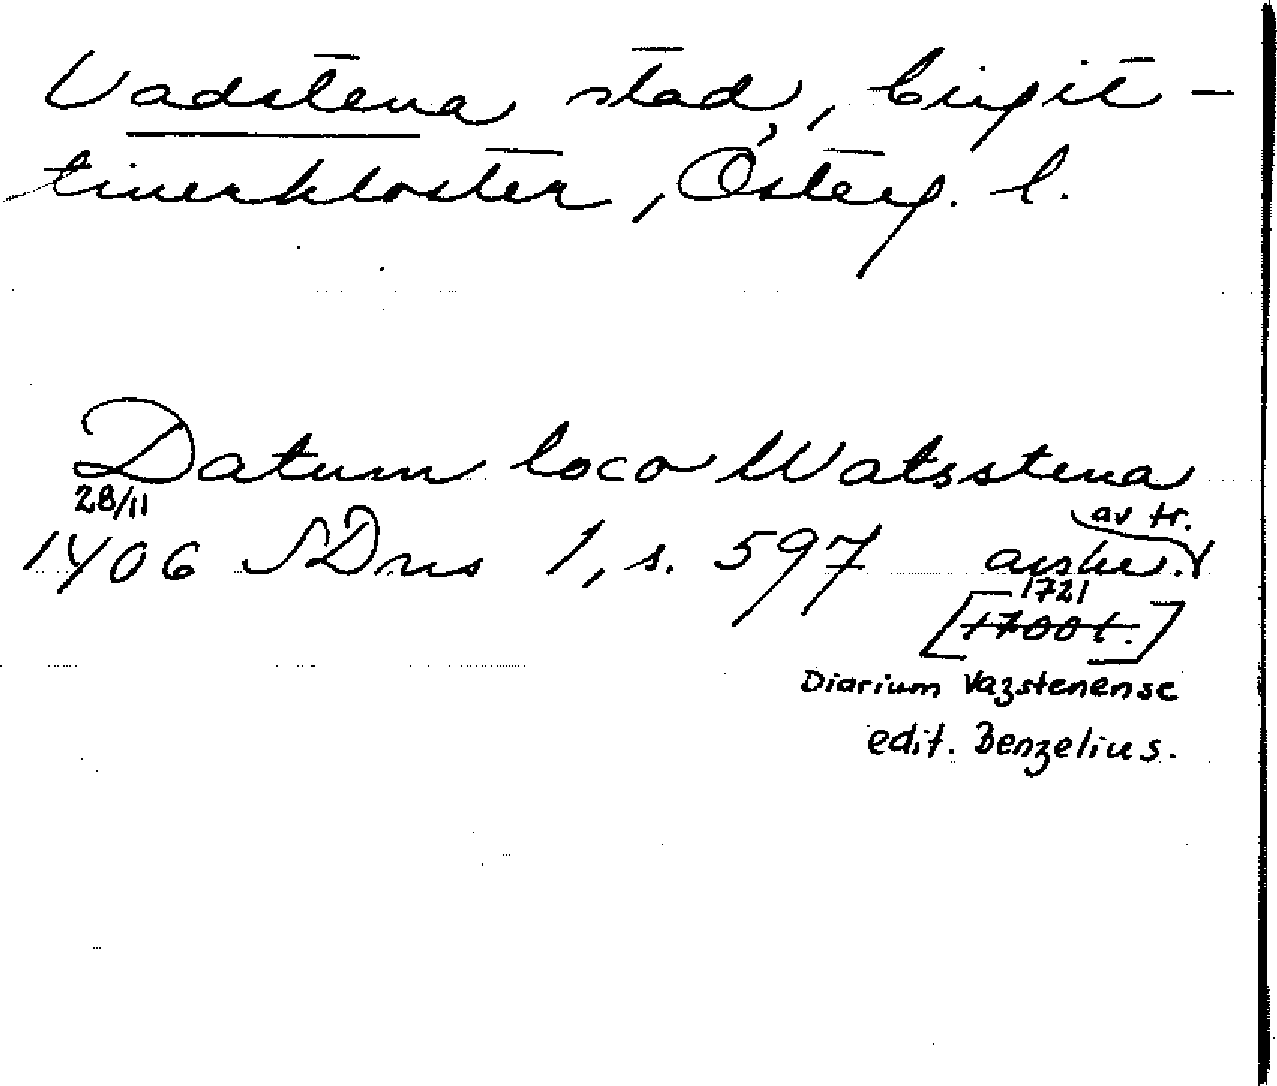 Vadstena stad, birgit-
tinerkloster, Österg. l.
Datum loco Watsstena
28/11
av tr.
1406 SDns 1, s. 597 avskr.
1721
[1700 t.]
Diarium Vazstenense
edit. Benzelius.